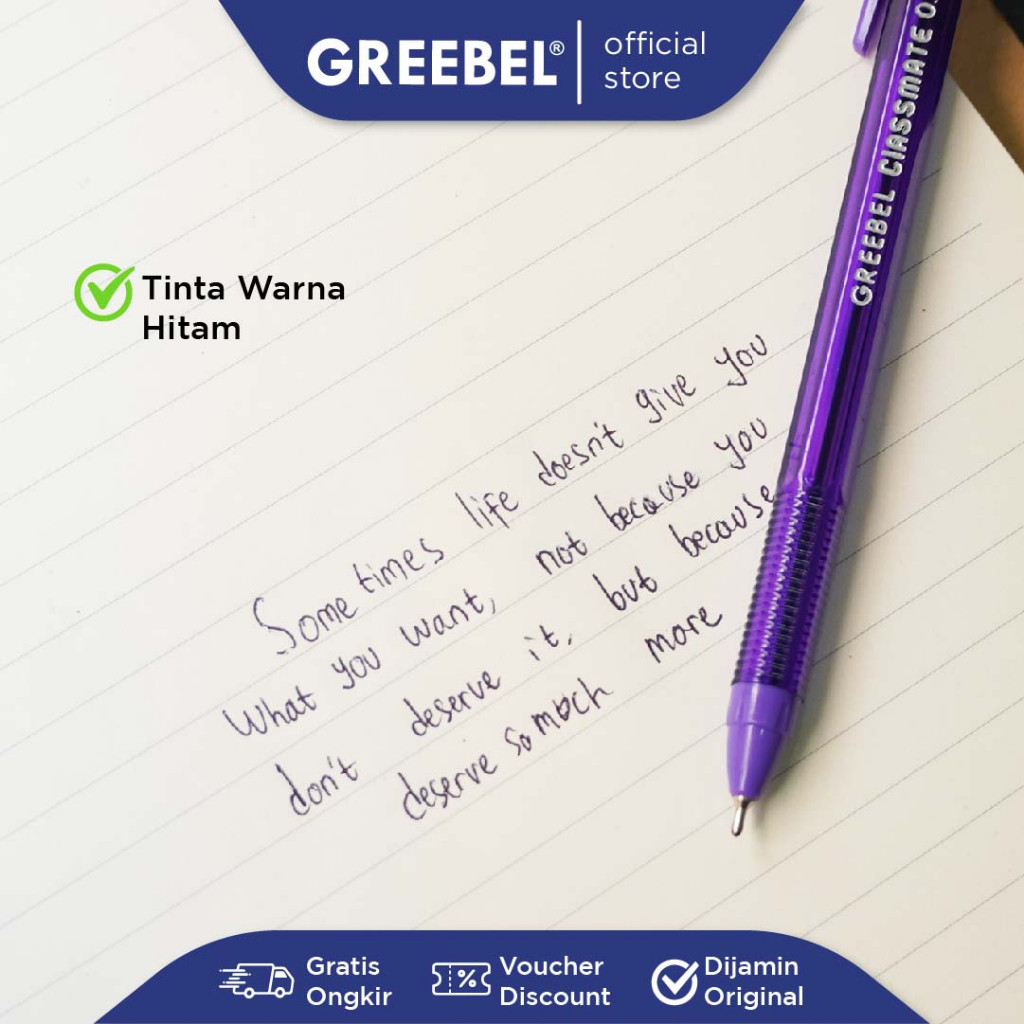 GREEBEL® official store
GREEBEL CLASSMATE 0.
Tinta Warna
Hitam
Some times life doesn't give you
What you want, not because you
don't deserve it, but because
deserve so much more
Gratis Ongkir
Voucher Discount
Dijamin Original